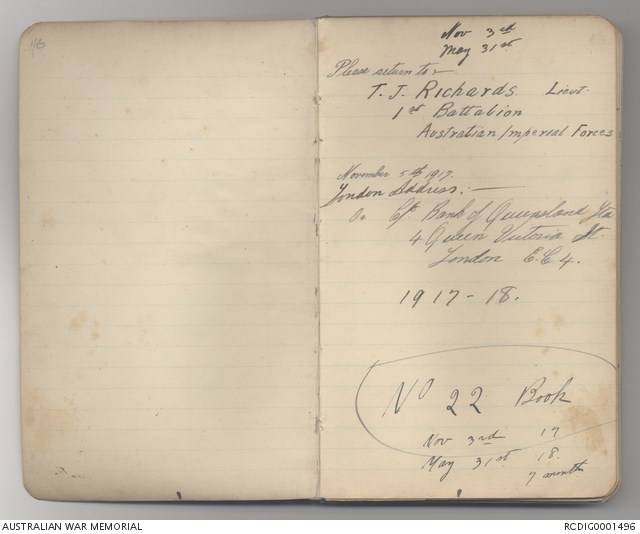 Nov 3rd
May 31st
Please return to:-
T. J. Richards Lieut.
1st Battalion
Australian Imperial Forces
November 5th 1917.
London Address:-
Bank of Queensland Ltd
4 Queen Victoria St.
London E.C 4.
1917-18.
No 22 Book
Nov 3rd 17
May 31st 18.
7 month
AUSTRALIAN WAR MEMORIAL
RCDIG0001496